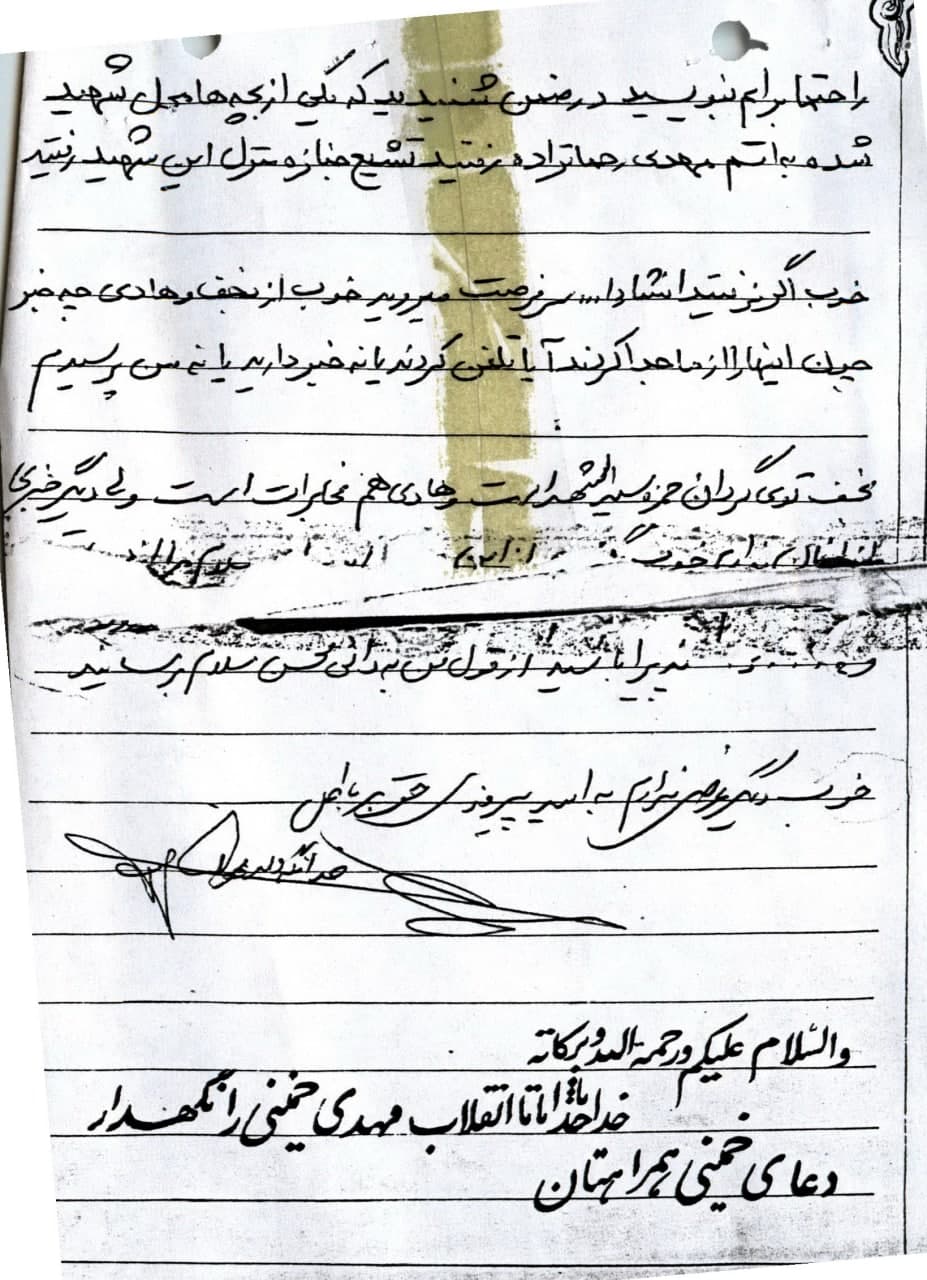 را حتما برام بنویسید در ضمن شنیدید که یکی از بچه ها محل شهید
شده به اسم مهدی رضا زاده رفتید تشیع جنازه و منزل این شهید رفتید
خوب اگر نرفتید انشا ا... سر فرصت میروید خوب از نجف و هادی چه خبر
چون اینها را از ما جدا کردند آیا تلفن کردند یا نه خبر دارید یا نه من پرسیدم
نجف توی گردان حمزه سید الشهدا است و هادی هم مخابرات است ولی دیگر خبری
ندارم خوب از این سلام
پذیرا باشید از قول من به دائی محسن سلام برسانید
خوب دیگر عرضی ندارم به امید پیروزی حق بر باطل
خدا نگهدار
والسلام علیکم ورحمة الله وبرکاته
خدایا خدایا تا انقلاب مهدی خمینی را نگهدار
دعای خمینی همراهتان